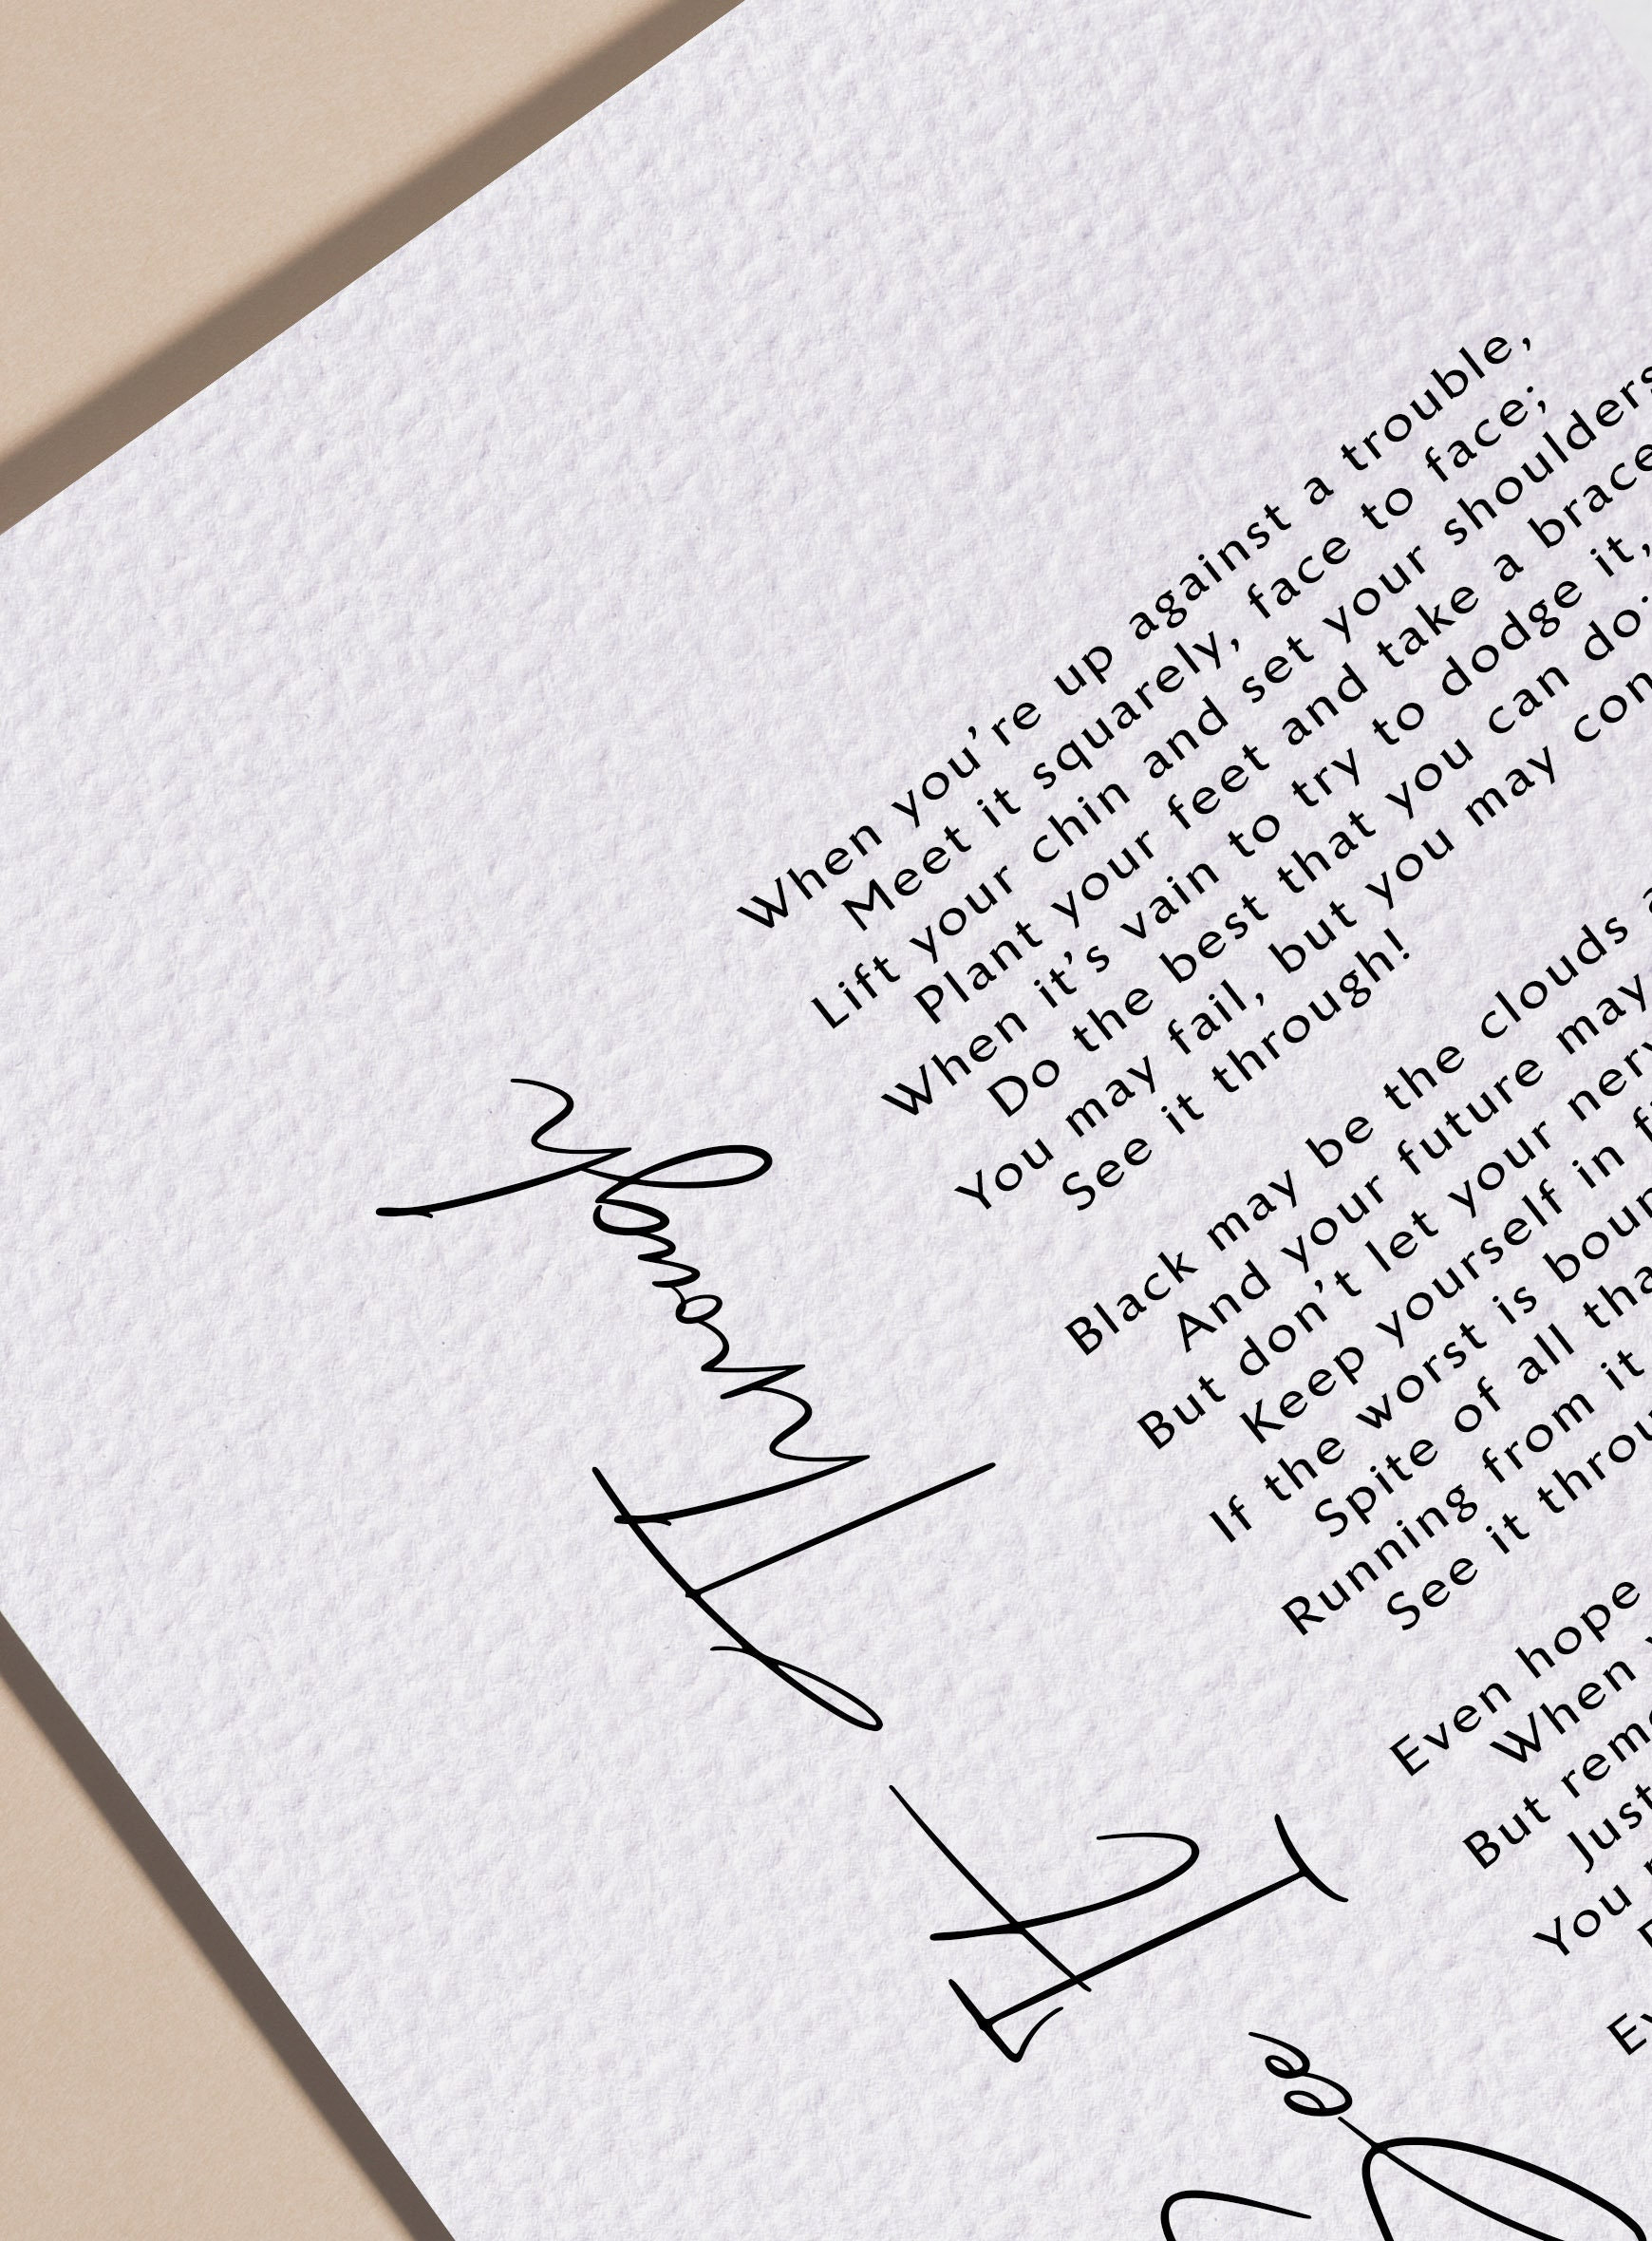 See It Through
When you're up against a trouble,
Meet it squarely, face to face;
Lift your chin and set your shoulders
Plant your feet and take a brace
When it's vain to try to dodge it,
Do the best that you can do;
You may fail, but you may con
See it through!
Black may be the clouds
And your future may
But don't let your
Keep yourself in
If the worst is
Spite of all
Running from it
See it
Even hope
When
But
Just
You